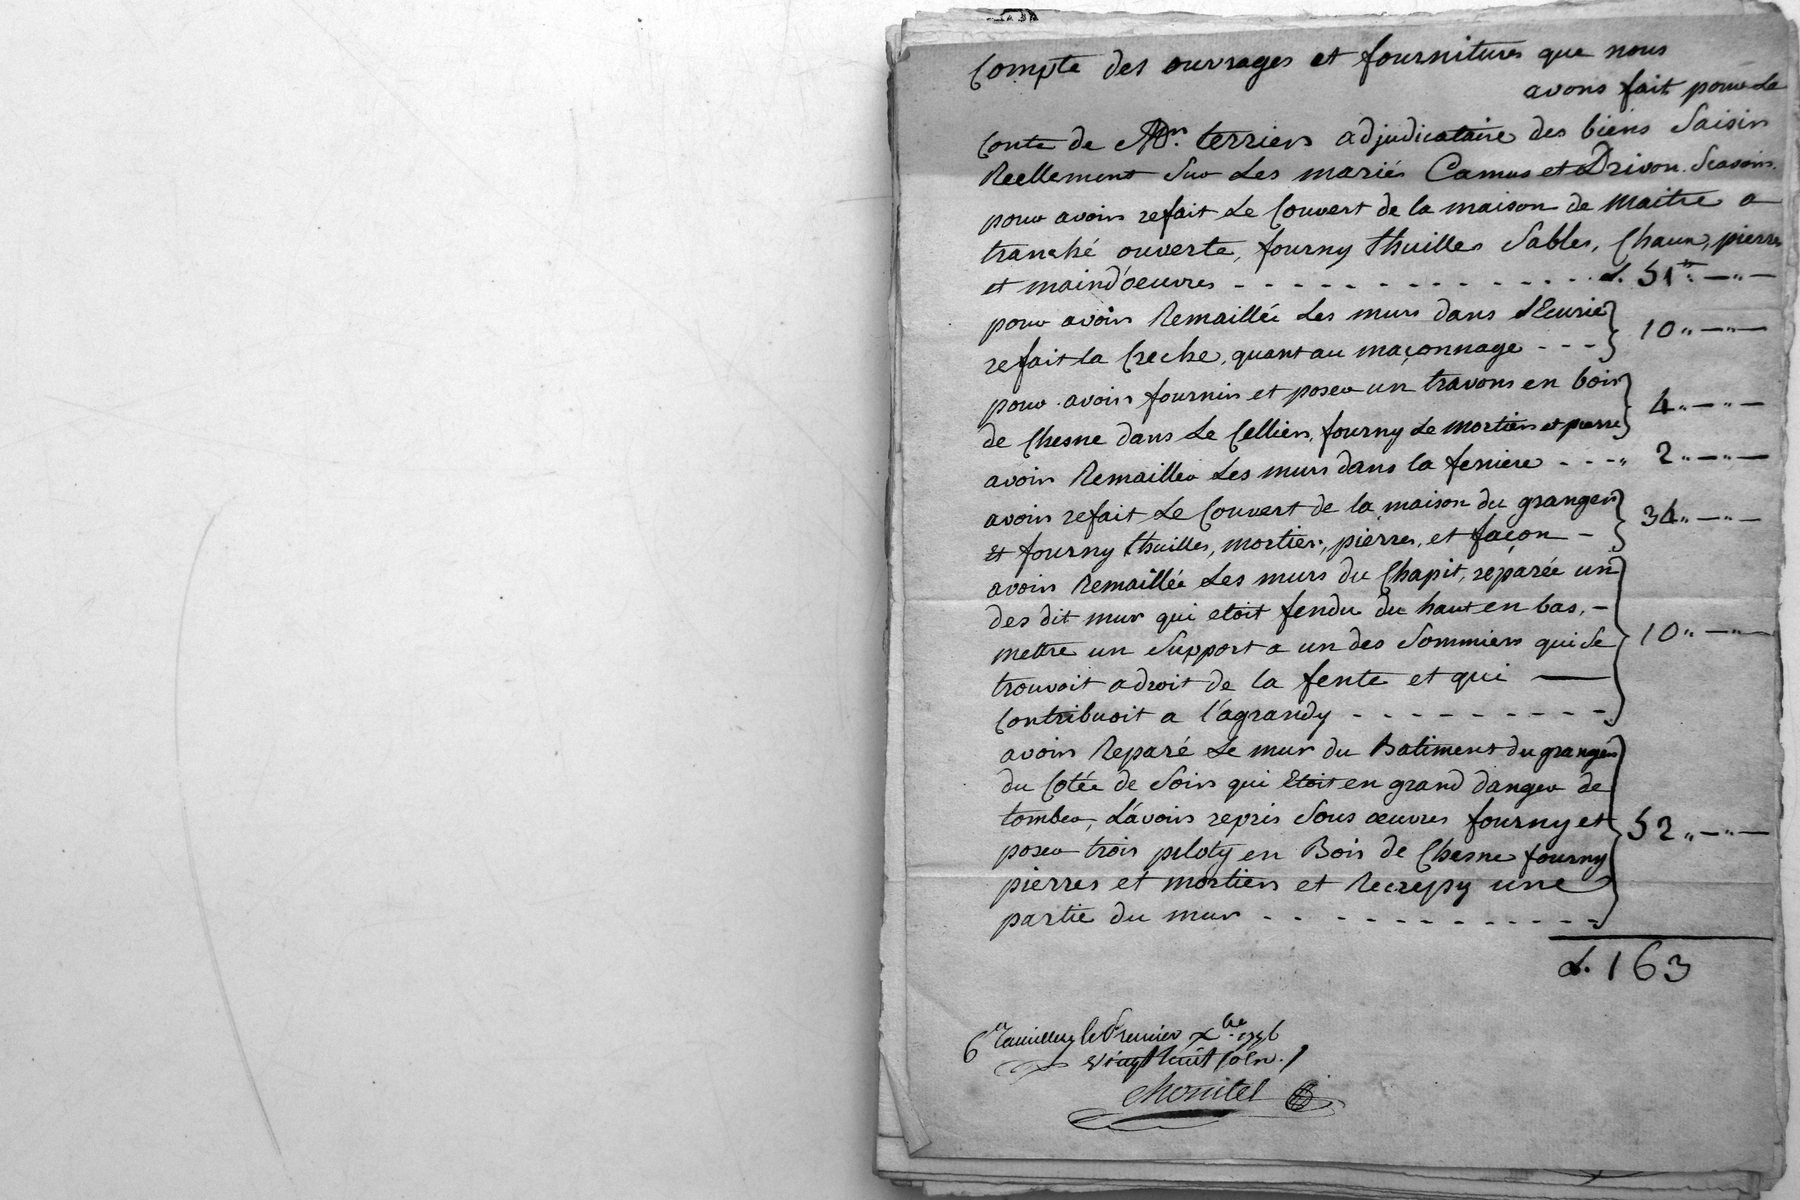 Compte des ouvrages et fournitures que nous
avons fait pour Le
Conte de Mr. terrier adjudicataire des biens Saisir
Reellement Sur Les mariés Camus et Drivon. Scavoir.
pour avoir refait Le Couvert de la maison de Maitre a
tranché ouverte, fourny thuilles Sables, Chaux, pierres
et maind'oeuvres - - - - - - - - - - - - - - L. 51tt. — " —
pour avoir Remaillée Les murs dans L'Ecurie
refait la Creche, quant au maçonnage - - - 10 " — " —
pour avoir fournir et poser un travons en bois
de Chesne dans Le Cellier, fourny Le mortier et pierre 4 " — " —
avoir Remailler Les murs dans la feniere - - - " 2 " — " —
avoir refait Le Couvert de la maison du granger
Et fourny thuilles, mortier, pierres, et façon - 34 " — " —
avoir Remaillée Les murs du Chapit, reparée un
des dit mur qui etoit fendu du haut en bas, -
mettre un Support a un des Sommiers qui Se 10 " — " —
trouvoit adroit de la fente et qui —
Contribuoit a l'agrandy - - - - - - - - -
avoir Reparé Le mur du Batiment du granger
du Cotée de Soir qui Etoit en grand danger de
tomber, L'avoir repris Sous œuvres fourny et 52 " — " —
poser trois piloty en Bois de Chesne fourny
pierres et mortier et Recrepy une
partie du mur - - - - - - - - - - - -
L. 163
le Premier Xbre
vingt huit